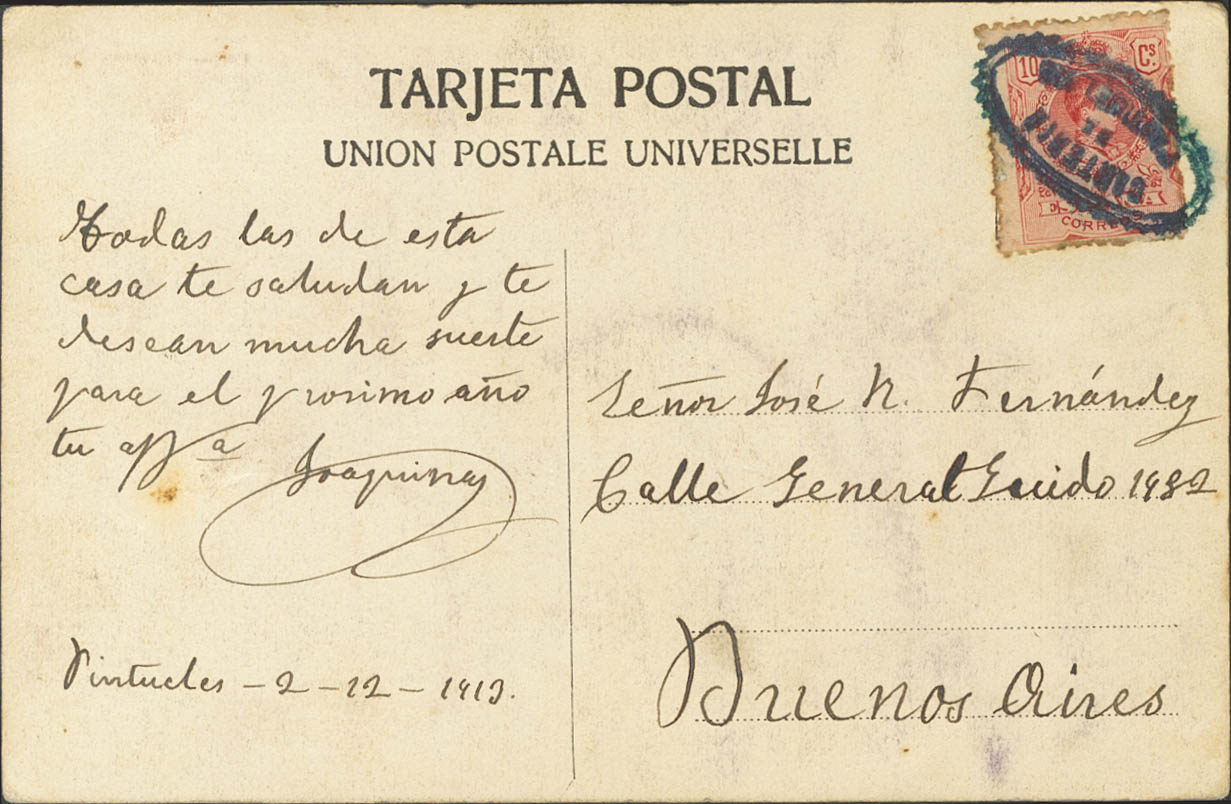 TARJETA POSTAL
UNION POSTALE UNIVERSELLE
10 Cs.
CARTERIA
CORREOS
Todas las de esta
casa te saludan y te
desean mucha suerte
para el prosimo año
tu affa
Joaquina
Señor José N. Fernández
Calle General Guido 1982
Buenos Aires
- 2 - 12 - 1913.